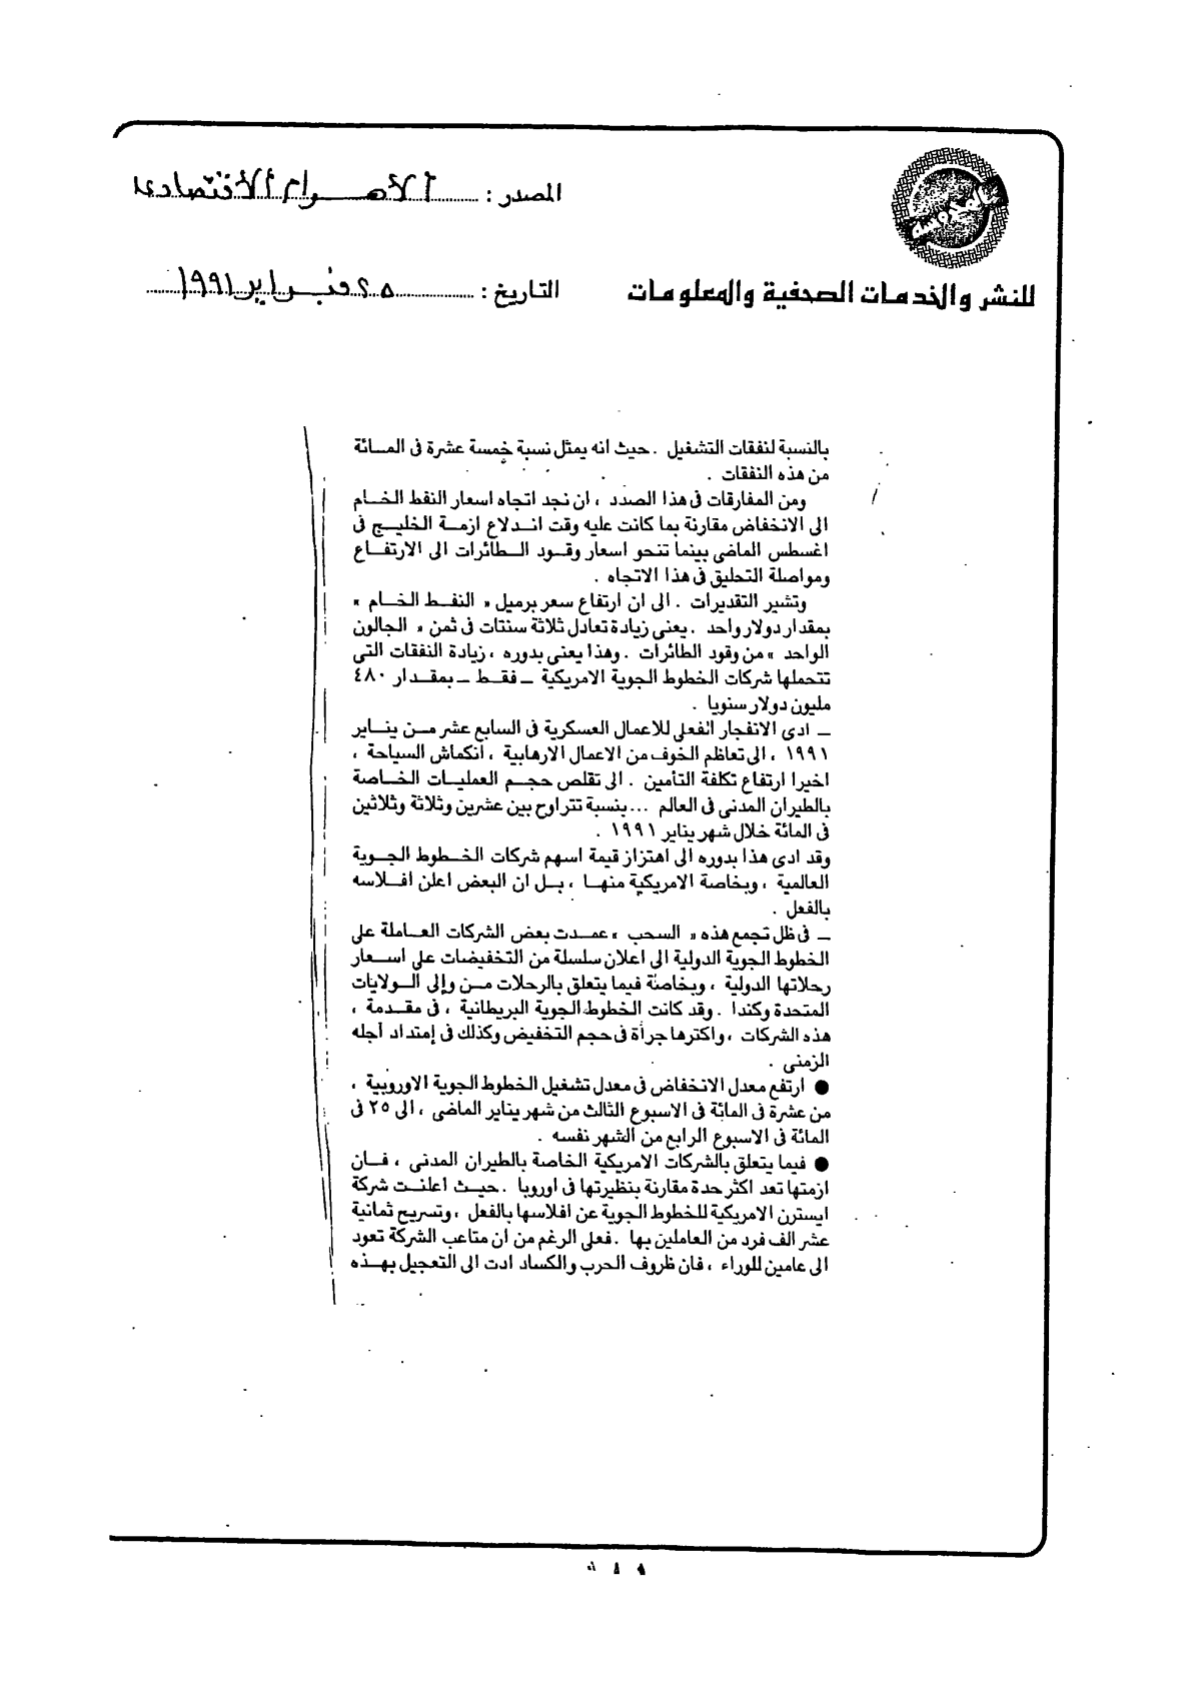 المصدر : الأهـرام الأقتصادى
للنشر والخدمات الصحفية والمعلومات
التاريخ : ٢٥ فبراير ١٩٩١
بالنسبة لنفقات التشغيل . حيث انه يمثل نسبة خمسة عشرة فى المـائة
من هذه النفقات .
ومن المفارقات فى هذا الصدد ، ان نجد اتجاه اسعار النفط الخـام
الى الانخفاض مقارنة بما كانت عليه وقت انـدلاع ازمـة الخليـج فى
اغسطس الماضى بينما تنحو اسعار وقـود الـطائرات الى الارتفـاع
ومواصلة التحليق فى هذا الاتجاه .
وتشير التقديرات . الى ان ارتفاع سعر برميل « النفـط الخـام »
بمقدار دولار واحد . يعنى زيادة تعادل ثلاثة سنتات فى ثمن « الجالون
الواحد » من وقود الطائرات . وهذا يعنى بدوره ، زيادة النفقات التى
تتحملها شركات الخطوط الجوية الامريكية ـ فقـط ـ بمقـدار ٤٨٠
مليون دولار سنويا .
ـ ادى الانفجار الفعلى للاعمال العسكرية فى السابع عشر مـن ينـاير
١٩٩١ ، الى تعاظم الخوف من الاعمال الارهابية ، انكماش السياحة ،
اخيرا ارتفاع تكلفة التأمين . الى تقلص حجـم العمليـات الخـاصة
بالطيران المدنى فى العالم ... بنسبة تتراوح بين عشرين وثلاثة وثلاثين
فى المائة خلال شهر يناير ١٩٩١ .
وقد ادى هذا بدوره الى اهتزاز قيمة اسهم شركات الخـطوط الجـوية
العالمية ، وبخاصة الامريكية منهـا ، بـل ان البعض اعلن افـلاسه
بالفعل .
ـ فى ظل تجمع هذه « السحب » عمـدت بعض الشركات العـاملة على
الخطوط الجوية الدولية الى اعلان سلسلة من التخفيضات على اسـعار
رحلاتها الدولية ، وبخاصة فيما يتعلق بالرحلات مـن وإلى الـولايات
المتحدة وكندا . وقد كانت الخطوط الجوية البريطانية ، فى مقـدمة ،
هذه الشركات ، واكثرها جرأة فى حجم التخفيض وكذلك فى إمتداد أجله
الزمنى .
● ارتفع معدل الانخفاض فى معدل تشغيل الخطوط الجوية الاوروبية ،
من عشرة فى المائة فى الاسبوع الثالث من شهر يناير الماضى ، الى ٢٥ فى
المائة فى الاسبوع الرابع من الشهر نفسه .
● فيما يتعلق بالشركات الامريكية الخاصة بالطيران المدنى ، فـان
ازمتها تعد اكثر حدة مقارنة بنظيرتها فى اوروبا . حيـث اعلنـت شركة
ايسترن الامريكية للخطوط الجوية عن افلاسها بالفعل ، وتسريح ثمانية
عشر الف فرد من العاملين بها . فعلى الرغم من ان متاعب الشركة تعود
الى عامين للوراء ، فان ظروف الحرب والكساد ادت الى التعجيل بهـذه